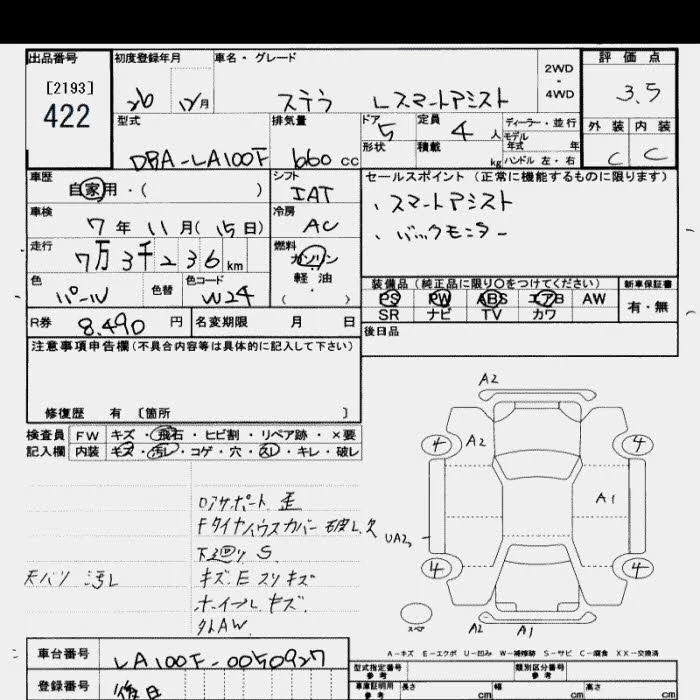 出品番号
[2193]
422
初度登録年月
26 12/月
車名・グレード
ステラ Lスマートアシスト
2WD
・
4WD
評価点
3.5
外装 内装
C C
型式
DBA-LA100F
排気量
660 cc
ドア
5
定員
4 人
ディーラー・並行
モデル
年式 年
形状
積載
kg
ハンドル 左・右
車歴
自家用・( )
シフト
IAT
セールスポイント(正常に機能するものに限ります)
、スマートアシスト
、バックモニター
車検
7 年 11 月(15 日)
冷房
AC
走行
7万3千236 km
燃料
ガソリン
軽油
( )
色
パール
色替
色コード
W24
装備品(純正品に限り○をつけてください)
新車保証書
PS PW ABS エアB AW
SR ナビ TV カワ
有・無
R券
8,490 円
名変期限 月 日
後日品
注意事項申告欄(不具合内容等は具体的に記入して下さい)
修復歴 有 〔箇所 〕
検査員 FW キズ・飛石・ヒビ割・リペア跡・×要
記入欄 内装 キズ・汚レ・コゲ・穴・スレ・キレ・破レ
ロアサポート 歪
Fタイヤハウスカバー 破レ、欠
下廻り S
天バリ 汚レ
キズ E スリキズ
ホイール キズ
外AW
A2
4 A2 4
A1
UA2
4 4
スペア
A2 A1
A-キズ E-エクボ U-凹み W-補修跡 S-サビ C-腐食 XX-交換済
車台番号
LA100F-0050927
登録番号
後日
型式指定番号
参考
類別区分番号
参考
車庫証明用
参考
長さ cm 幅 cm 高さ cm